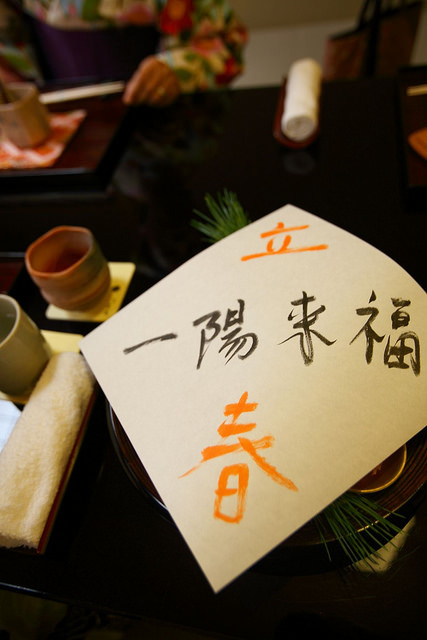 立
一陽来福
春